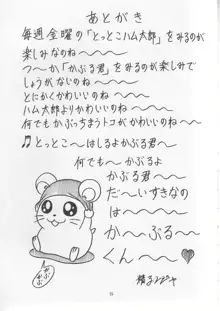 あとがき
毎週金曜の「とっとこハム太郎」をみるのが
楽しみなのね〜〜〜〜
つーか「かぶる君」をみるのが楽しみで
しょうがないのね〜〜〜
とにかくかわいいのね〜〜〜
ハム太郎よりかわいいのね〜〜〜
何でもかぶっちまうトコがかわいいのね〜〜
♫とっとこ〜はしるよかぶる君〜
何でも〜かぶるよ
かぶる君〜
だ〜いすきなの
は〜〜〜
か〜ぶる〜
くん〜〜〜♥
かぶ
かぶ